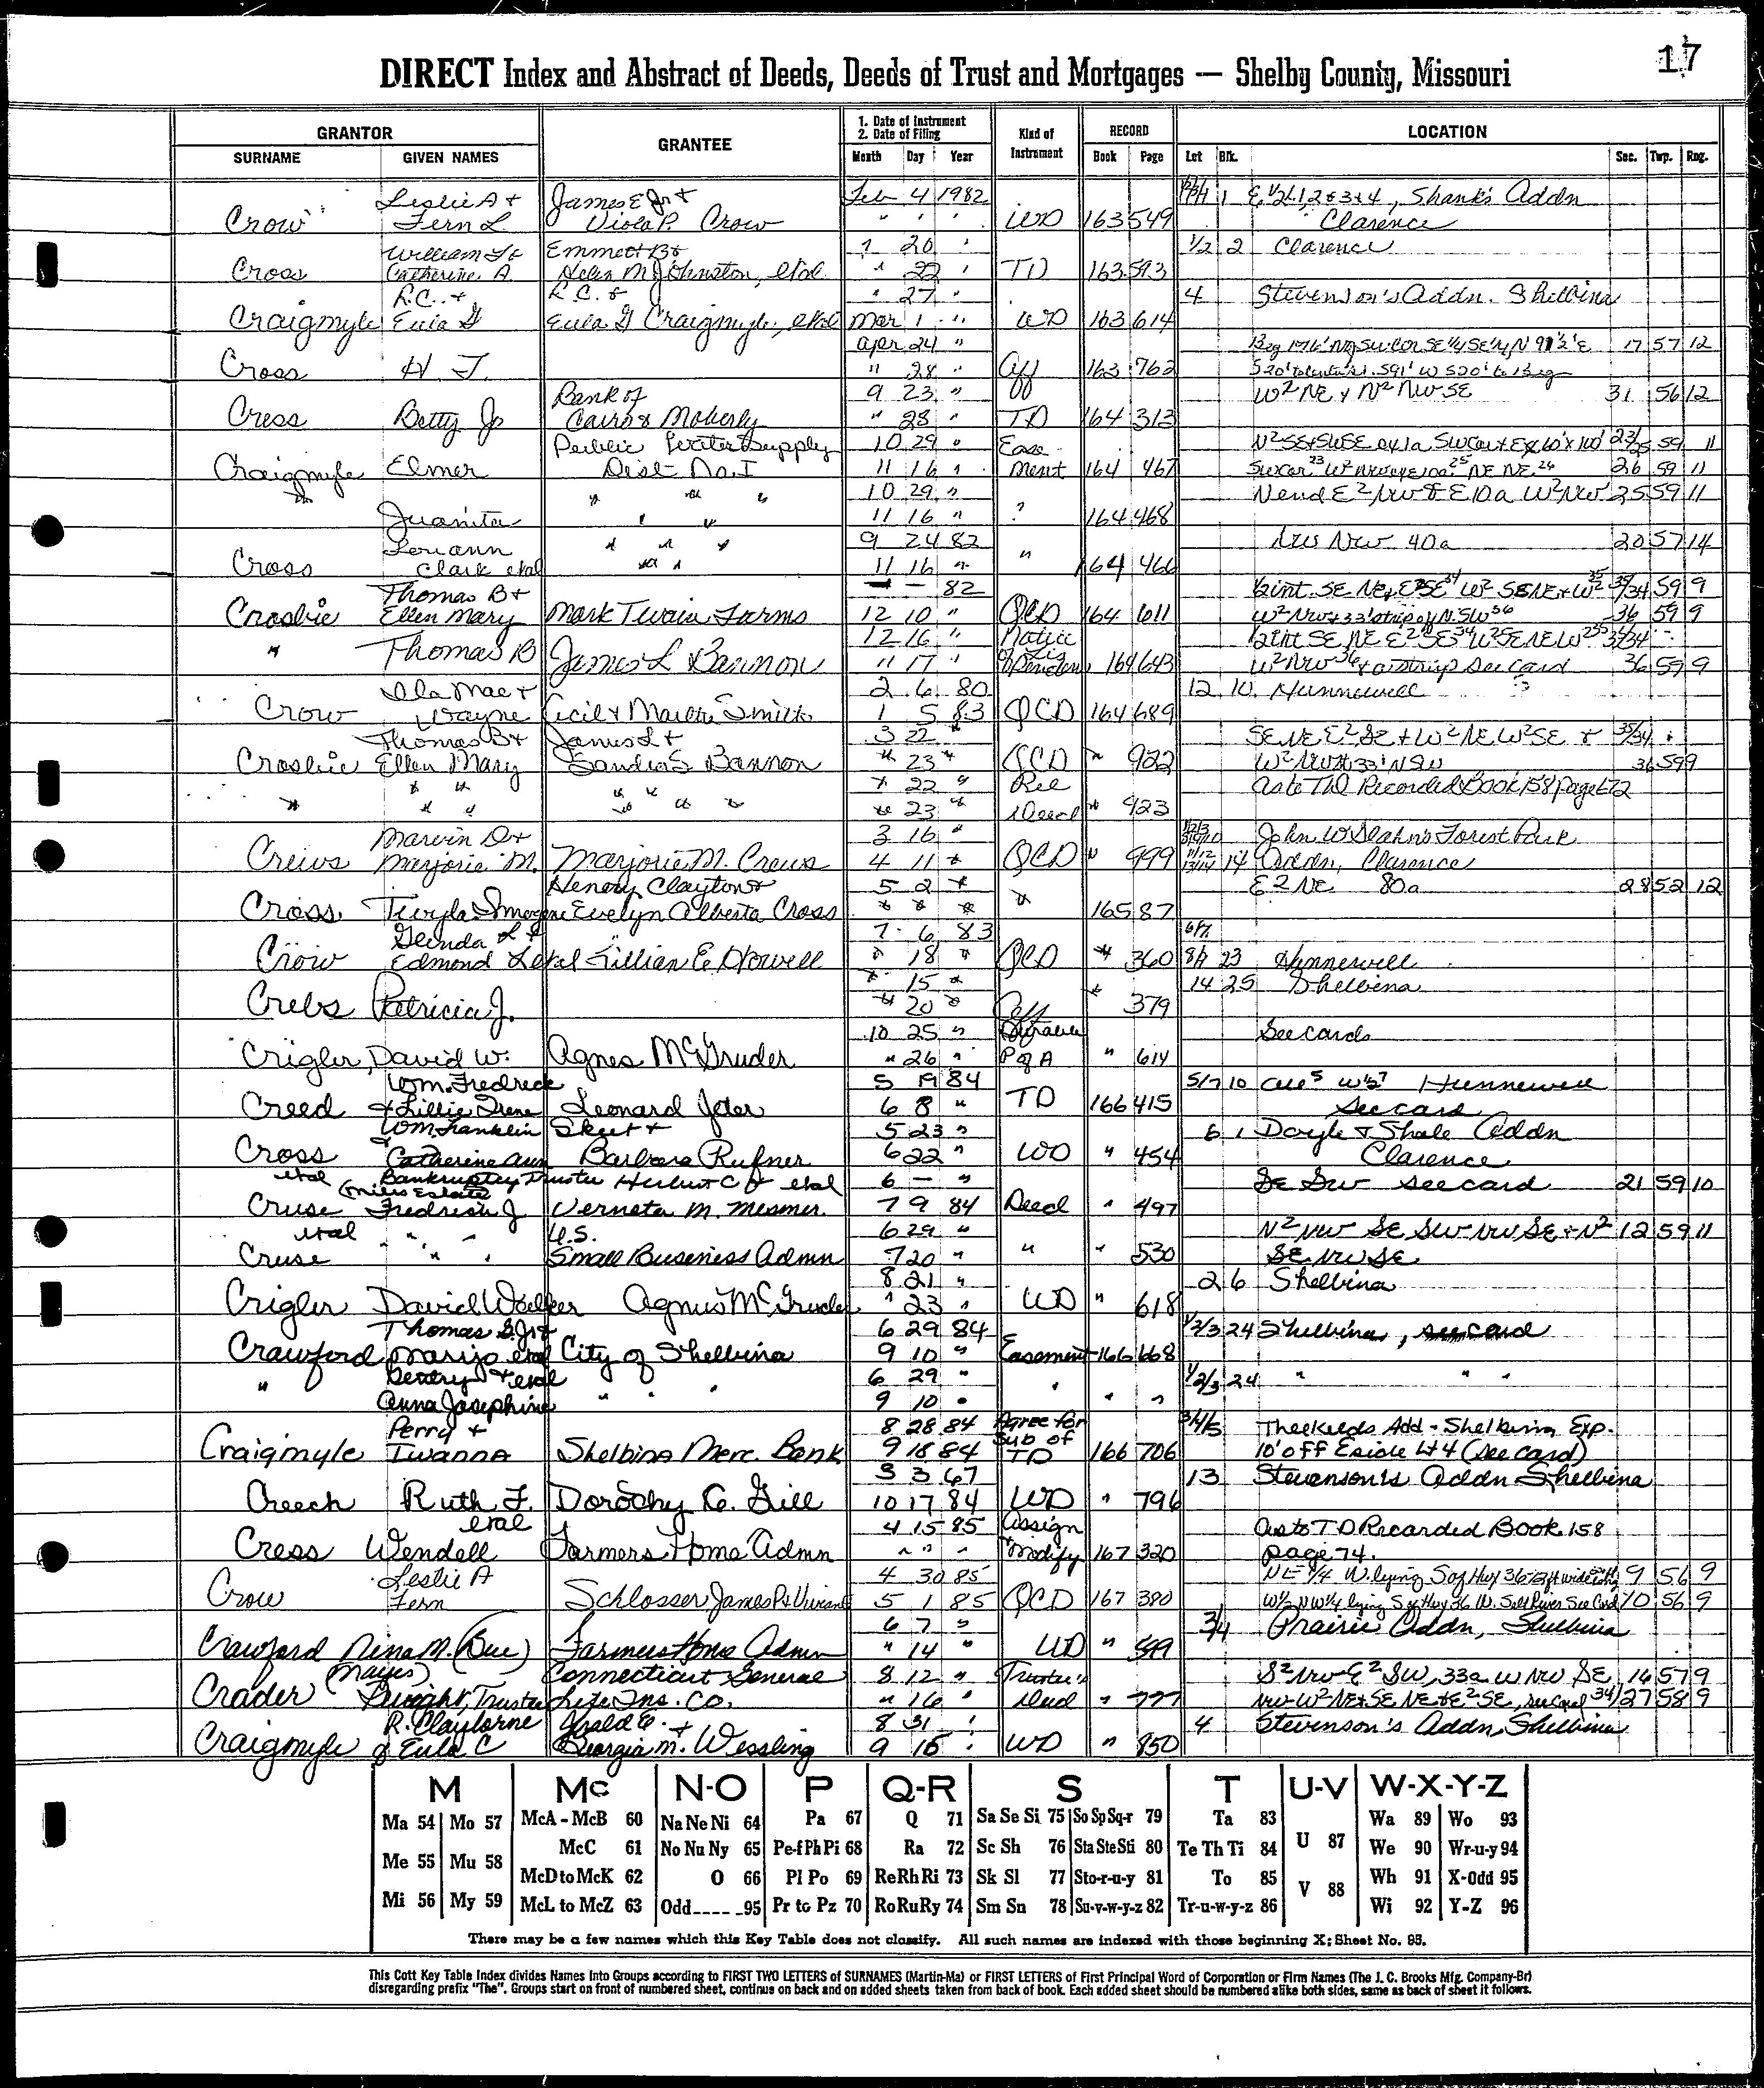 17
DIRECT Index and Abstract of Deeds, Deeds of Trust and Mortgages — Shelby County, Missouri
GRANTOR GRANTEE 1. Date of Instrument 2. Date of Filing Kind of Instrument RECORD LOCATION
SURNAME GIVEN NAMES Month Day Year Book Page Lot Blk. Sec. Twp. Rng.
Leslie A + James E Jr + Feb 4 1982 1 E 1/2 L 1, 2 & 3 + 4, Shank's Addn
Crow Fern L. Viola P. Crow " " " WD 163 549 Clarence
William F + Emmett B + 1 20 " 1/2 2 Clarence
Cross Catherine A. Helen M Johnston, etal " 22 " TD 163 593
R.C. + R.C. + " 27 " 4 Stevenson's Addn. Shelbina
Craigmyle Eula G Eula G Craigmyle, etal Mar 1 " WD 163 614
Apr 24 " 17 57 12
Cross H. J. " 28 " Aff 163 762
Bank of 9 23 " W2 NE + N2 NW SE 31 56 12
Cress Betty Jo Cairo & Moberly " 28 " TD 164 313
Public Water Supply 10 29 " Ease 59 11
Craigmyle Elmer Dist No. I 11 16 " ment 164 467 26 59 11
" " " " 10 29 " N end E2 NW & E 10a W2 NW 25 59 11
Juanita " " 11 16 " ? 164 468
Lou ann " " " 9 24 82 NW NW 40a 20 57 14
Cross Clark etal " " 11 16 " " 164 466
Thomas B + — — 82 59 9
Crosbie Ellen Mary Mark Twain Farms 12 10 " QCD 164 611 36 59 9
" Thomas B James L Bannon 12 16 " Notice
" 17 " of Lis Penden 164 643 see card 36 59 9
Ila Mae + 2 6 80 12 10 Hunnewell
Crow Wayne Cecil + Martha Smith 1 5 83 QCD 164 689
Thomas B + James L + 3 22 " SE NE E2 SE + W2 NE W2 SE + 35/34
Crosbie Ellen Mary Sandra S Bannon " 23 " QCD " 922 36 59 9
" " " " " 22 " Rel as to TD Recorded Book 158 page 672
" " " " " " " 23 " Deed " 923
Marvin D + 3 16 " John W Forest Park
Crews Marjorie M. Marjorie M. Crews 4 11 " QCD " 999 14 Addn, Clarence
Henery Clayton + 5 2 " E2 NE 80a 28 52 12
Cross Twyla Imogene Evelyn Alberta Cross " " " " 165 87
Glenda L + 7 6 83
Crow Edmond L etal Lillian E Howell " 18 " QCD " 360 23 Hunnewell
" 15 " 14 25 Shelbina
Crebs Patricia J. " 20 " Aff " 379
10 25 " See cards
Crigler, David W. Agnes McGruder " 26 " P of A " 614
Wm. Fredrick 5 19 84 5/7 10 Hunnewell
Creed + Lillie Irene Leonard Jeter 6 8 " TD 166 415 See card
Wm Franklin Skeet + 5 23 " 6 1 Doyle + Shale Addn
Cross & Catherine Ann Barbara Rufner 6 22 " WD " 454 Clarence
etal Bankruptcy Trustee Herbert C & etal 6 — " SE SW see card 21 59 10
Cruse Fredrich J Verneta M. Mesmer 7 9 84 Deed " 497
etal " " " U.S. 6 29 " N2 NW SE SW NW SE + N2 12 59 11
Cruse Small Buseness Admn 7 20 " " " 530 SE NW SE
8 21 " 2 6 Shelbina
Crigler David Walker Agnus McGruder " 23 " WD " 618
Thomas S. Jr + 6 29 84 1/2/3 24 Shelbina, see card
Crawford Marijo etal City of Shelbina 9 10 " Easement 166 668
" Gentry + etal " " " 6 29 " " 1/2/3 24 " " "
Anna Josephine 9 10 " " "
Perry + 8 28 84 Agree for 3/4/5 Theekelds Add - Shelbina Exp.
Craigmyle Twanna Shelbina Merc. Bank 9 18 84 Sub of TD 166 706 10' off E side Lt 4 (see card)
3 3 67 13 Stevenson's Addn Shelbina
Creech Ruth F. Dorothy C. Gill 10 17 84 WD " 796
etal 4 15 85 Assign As to TD Recorded Book 158
Cress Wendell Farmers Home Admn " " " Modify 167 320 page 74.
Leslie A 4 30 85 9 56 9
Crow Fern Schlosser James P + Vivian 5 1 85 QCD 167 380 W 1/2 NW 1/4 lying S of Hwy 36 W. Salt River See Card 10 56 9
6 7 " 3/4 Prairie Addn, Shelbina
Crawford Nina M. (Bue) Farmers Home Admn " 14 " WD " 599
(Mayes) Connecticut General 8 12 " Trustee's S2 NW E2 SW, 33a W NW SE, 14 57 9
Crader Dwight, Trustee Life Ins. Co. " 16 " Deed " 777 NW-W2 NE + SE NE + E2 SE, see card 34/27 58 9
R. Clayborne Gerald E. + 8 31 " 4 Stevenson's Addn, Shelbina
Craigmyle & Eula C Georgia M. Wessling 9 16 " WD " 850
M Mc N-O P Q-R S T U-V W-X-Y-Z
Ma 54 Mo 57 McA - McB 60 Na Ne Ni 64 Pa 67 Q 71 Sa Se Si 75 So Sp Sq-r 79 Ta 83 U 87 Wa 89 Wo 93
McC 61 No Nu Ny 65 Pe-f Ph Pi 68 Ra 72 Sc Sh 76 Sta Ste Sti 80 Te Th Ti 84 We 90 Wr-u-y 94
Me 55 Mu 58 McD to McK 62 O 66 Pl Po 69 Re Rh Ri 73 Sk Sl 77 Sto-r-u-y 81 To 85 V 88 Wh 91 X-Odd 95
Mi 56 My 59 McL to McZ 63 Odd---- -95 Pr to Pz 70 Ro Ru Ry 74 Sm Sn 78 Su-v-w-y-z 82 Tr-u-w-y-z 86 Wi 92 Y-Z 96
There may be a few names which this Key Table does not classify. All such names are indexed with those beginning X; Sheet No. 95.
This Cott Key Table Index divides Names Into Groups according to FIRST TWO LETTERS of SURNAMES (Martin-Ma) or FIRST LETTERS of First Principal Word of Corporation or Firm Names (The J. C. Brooks Mfg. Company-Br)
disregarding prefix "The". Groups start on front of numbered sheet, continue on back and on added sheets taken from back of book. Each added sheet should be numbered alike both sides, same as back of sheet it follows.